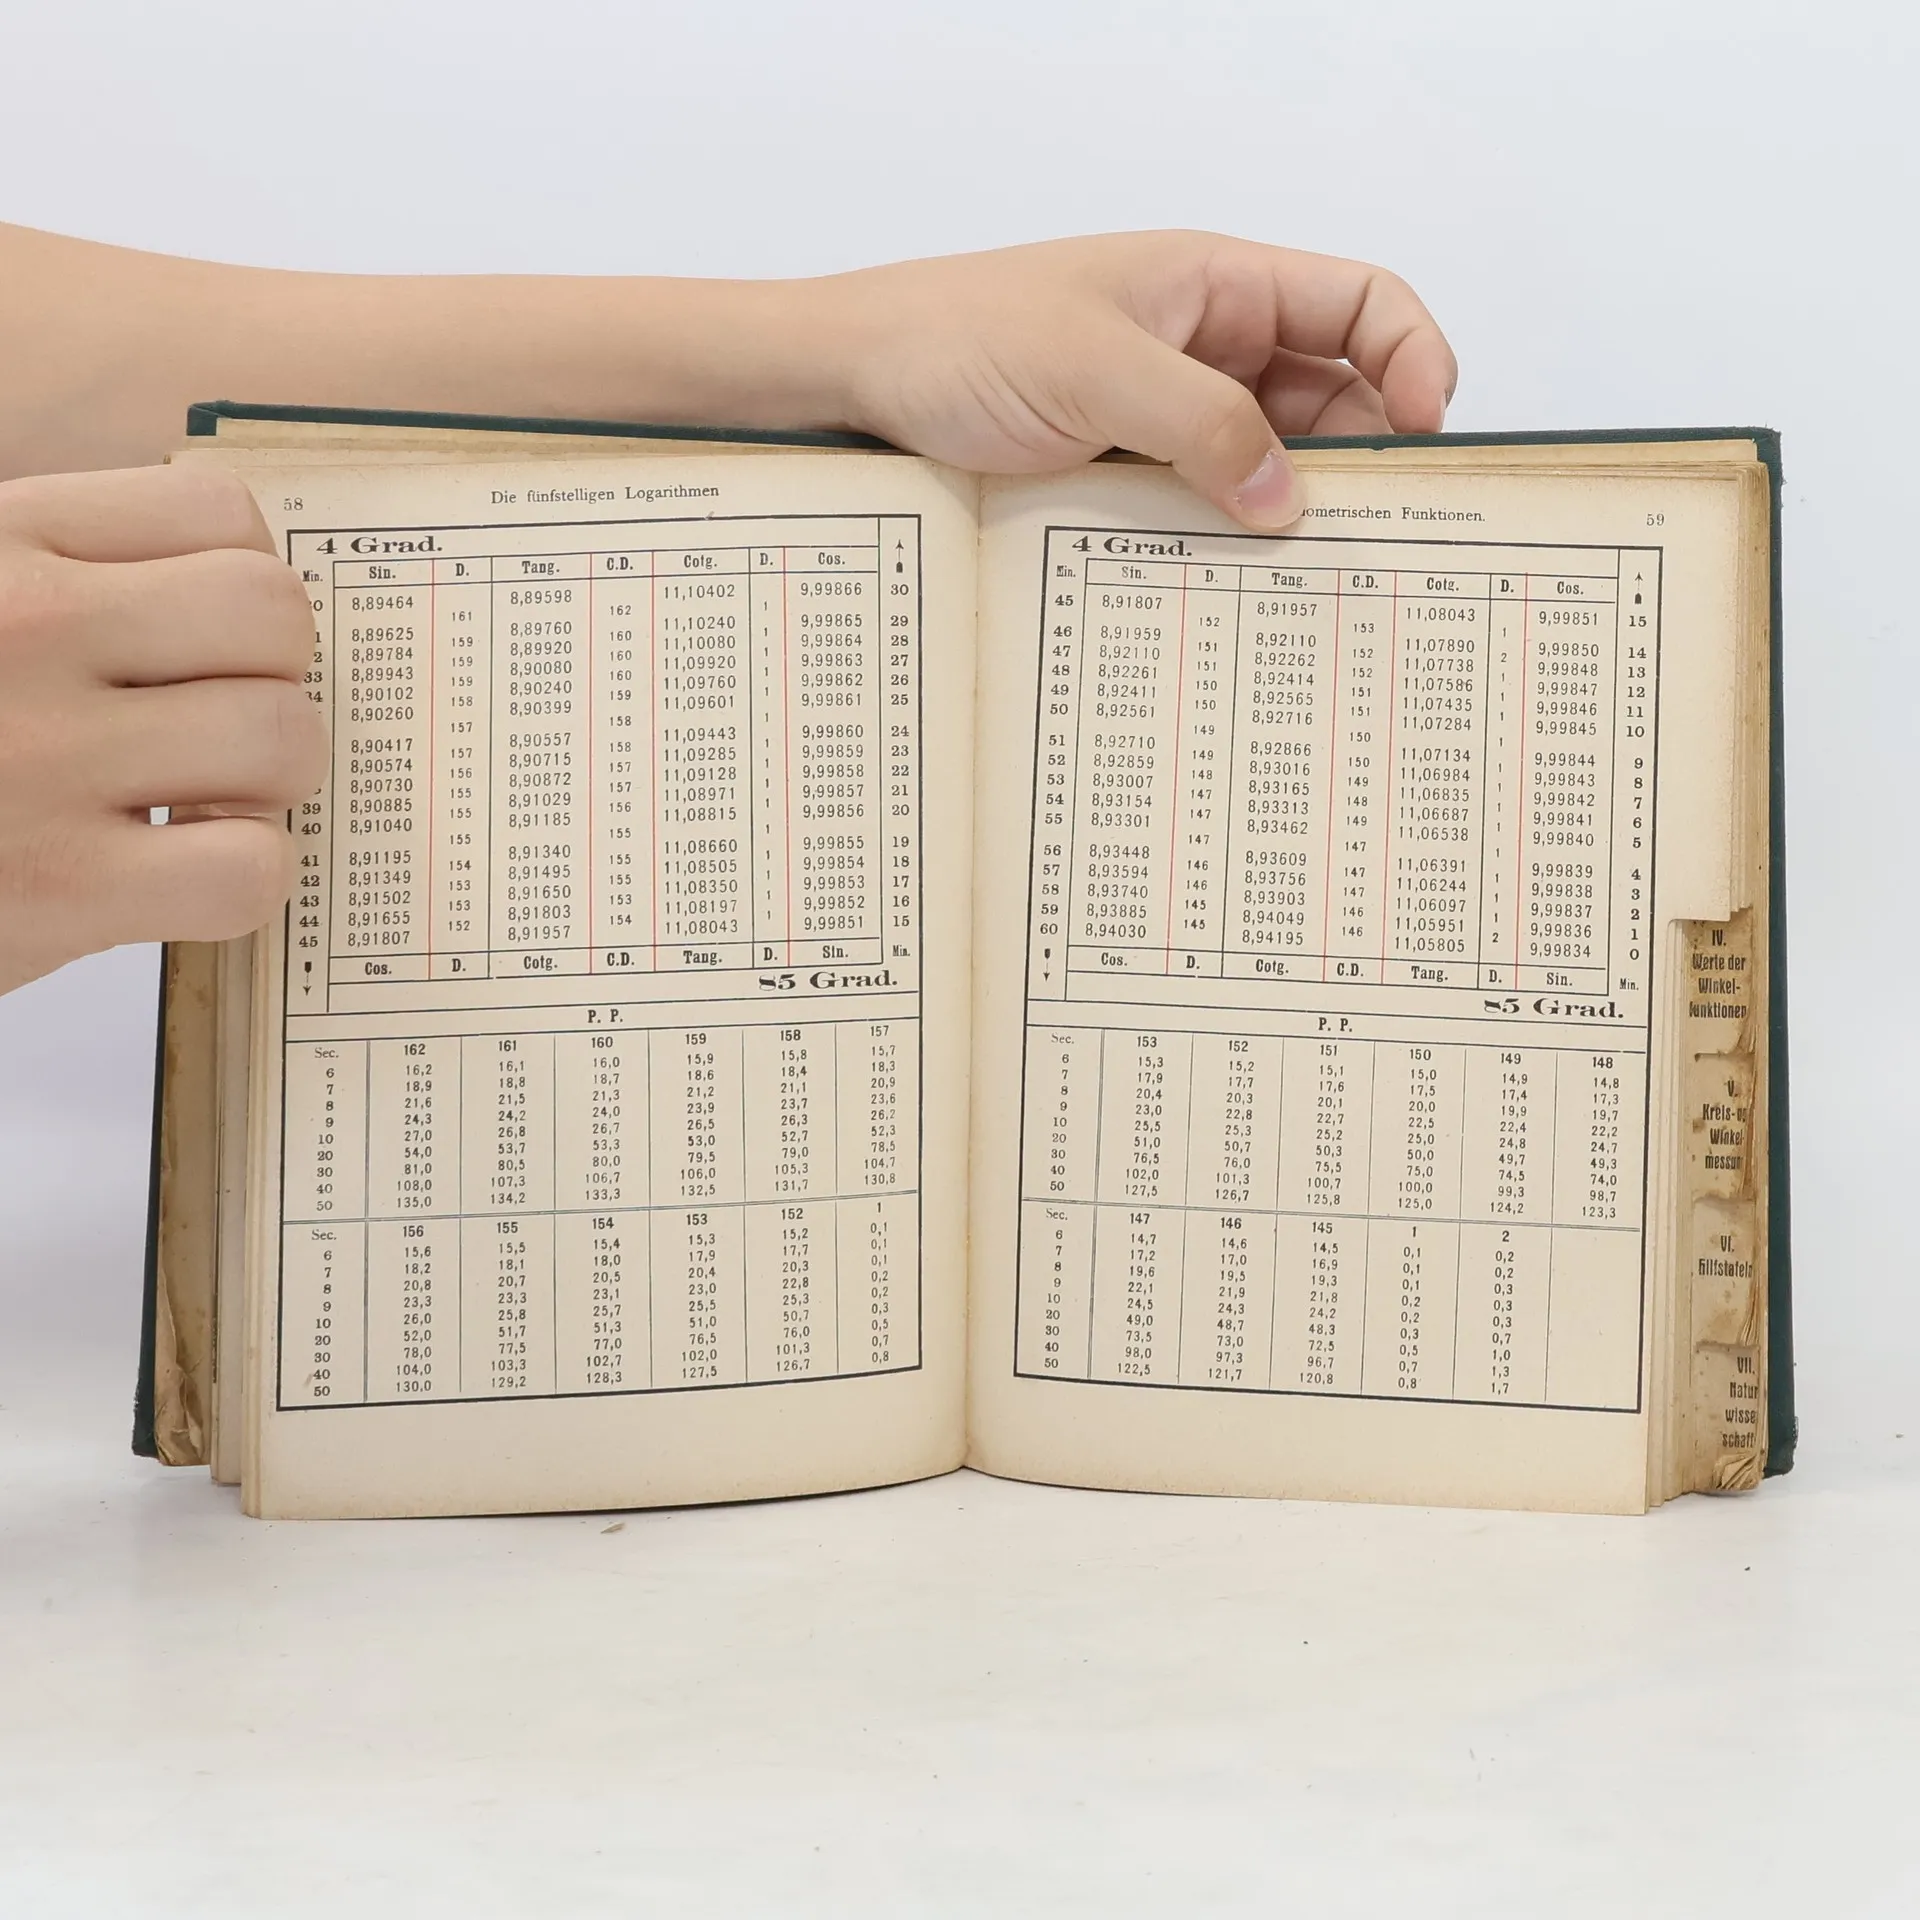 58
Die fünfstelligen Logarithmen
4 Grad.
Min. Sin. D. Tang. C.D. Cotg. D. Cos.
8,89464 161 8,89598 162 11,10402 1 9,99866 30
8,89625 159 8,89760 160 11,10240 1 9,99865 29
8,89784 159 8,89920 160 11,10080 1 9,99864 28
33 8,89943 159 8,90080 160 11,09920 1 9,99863 27
34 8,90102 158 8,90240 159 11,09760 1 9,99862 26
8,90260 157 8,90399 158 11,09601 1 9,99861 25
8,90417 157 8,90557 158 11,09443 1 9,99860 24
8,90574 156 8,90715 157 11,09285 1 9,99859 23
8,90730 155 8,90872 157 11,09128 1 9,99858 22
39 8,90885 155 8,91029 156 11,08971 1 9,99857 21
40 8,91040 155 8,91185 155 11,08815 1 9,99856 20
41 8,91195 154 8,91340 155 11,08660 1 9,99855 19
42 8,91349 153 8,91495 155 11,08505 1 9,99854 18
43 8,91502 153 8,91650 153 11,08350 1 9,99853 17
44 8,91655 152 8,91803 154 11,08197 1 9,99852 16
45 8,91807 8,91957 11,08043 9,99851 15
Cos. D. Cotg. C.D. Tang. D. Sin. Min.
85 Grad.
P. P.
Sec. 162 161 160 159 158 157
6 16,2 16,1 16,0 15,9 15,8 15,7
7 18,9 18,8 18,7 18,6 18,4 18,3
8 21,6 21,5 21,3 21,2 21,1 20,9
9 24,3 24,2 24,0 23,9 23,7 23,6
10 27,0 26,8 26,7 26,5 26,3 26,2
20 54,0 53,7 53,3 53,0 52,7 52,3
30 81,0 80,5 80,0 79,5 79,0 78,5
40 108,0 107,3 106,7 106,0 105,3 104,7
50 135,0 134,2 133,3 132,5 131,7 130,8
Sec. 156 155 154 153 152 1
6 15,6 15,5 15,4 15,3 15,2 0,1
7 18,2 18,1 18,0 17,9 17,7 0,1
8 20,8 20,7 20,5 20,4 20,3 0,1
9 23,3 23,3 23,1 23,0 22,8 0,2
10 26,0 25,8 25,7 25,5 25,3 0,2
20 52,0 51,7 51,3 51,0 50,7 0,3
30 78,0 77,5 77,0 76,5 76,0 0,5
40 104,0 103,3 102,7 102,0 101,3 0,7
50 130,0 129,2 128,3 127,5 126,7 0,8
ometrischen Funktionen.
59
4 Grad.
Min. Sin. D. Tang. C.D. Cotg. D. Cos.
45 8,91807 152 8,91957 153 11,08043 1 9,99851 15
46 8,91959 151 8,92110 152 11,07890 2 9,99850 14
47 8,92110 151 8,92262 152 11,07738 1 9,99848 13
48 8,92261 150 8,92414 151 11,07586 1 9,99847 12
49 8,92411 150 8,92565 151 11,07435 1 9,99846 11
50 8,92561 149 8,92716 150 11,07284 1 9,99845 10
51 8,92710 149 8,92866 150 11,07134 1 9,99844 9
52 8,92859 148 8,93016 149 11,06984 1 9,99843 8
53 8,93007 147 8,93165 148 11,06835 1 9,99842 7
54 8,93154 147 8,93313 149 11,06687 1 9,99841 6
55 8,93301 147 8,93462 147 11,06538 1 9,99840 5
56 8,93448 146 8,93609 147 11,06391 1 9,99839 4
57 8,93594 146 8,93756 147 11,06244 1 9,99838 3
58 8,93740 145 8,93903 146 11,06097 1 9,99837 2
59 8,93885 145 8,94049 146 11,05951 2 9,99836 1
60 8,94030 8,94195 11,05805 9,99834 0
Cos. D. Cotg. C.D. Tang. D. Sin. Min.
85 Grad.
P. P.
Sec. 153 152 151 150 149 148
6 15,3 15,2 15,1 15,0 14,9 14,8
7 17,9 17,7 17,6 17,5 17,4 17,3
8 20,4 20,3 20,1 20,0 19,9 19,7
9 23,0 22,8 22,7 22,5 22,4 22,2
10 25,5 25,3 25,2 25,0 24,8 24,7
20 51,0 50,7 50,3 50,0 49,7 49,3
30 76,5 76,0 75,5 75,0 74,5 74,0
40 102,0 101,3 100,7 100,0 99,3 98,7
50 127,5 126,7 125,8 125,0 124,2 123,3
Sec. 147 146 145 1 2
6 14,7 14,6 14,5 0,1 0,2
7 17,2 17,0 16,9 0,1 0,2
8 19,6 19,5 19,3 0,1 0,3
9 22,1 21,9 21,8 0,2 0,3
10 24,5 24,3 24,2 0,2 0,3
20 49,0 48,7 48,3 0,3 0,7
30 73,5 73,0 72,5 0,5 1,0
40 98,0 97,3 96,7 0,7 1,3
50 122,5 121,7 120,8 0,8 1,7
IV.
Werte der
Winkel-
funktionen
V.
Kreis-
Winkel-
messun
VI.
Hilfstafeln
VII.
Natur
wisse
schaft